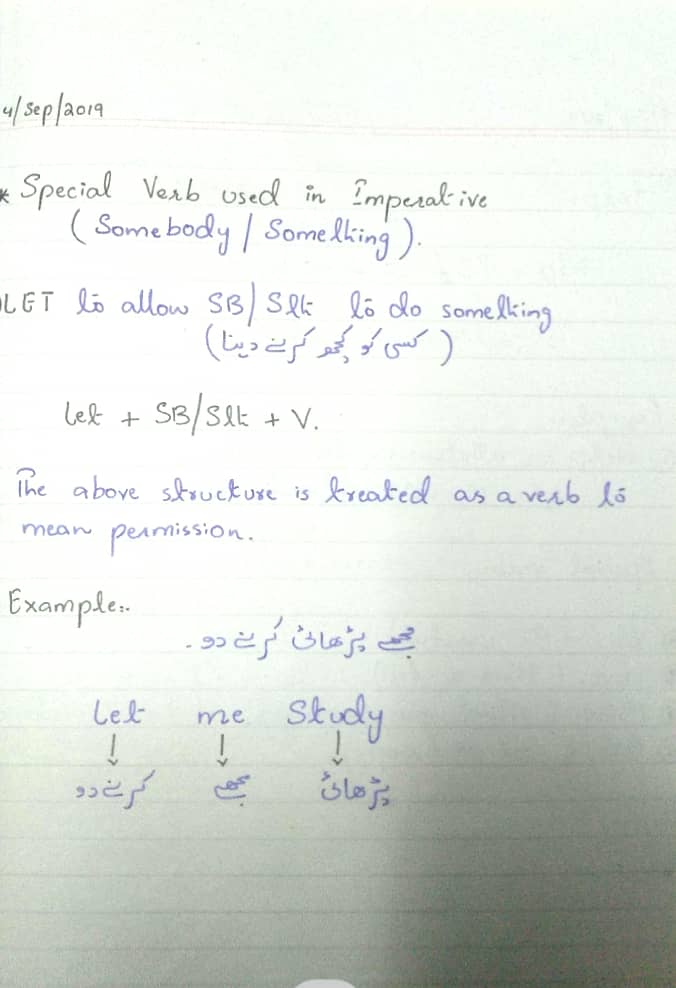 4/Sep/2019
* Special Verb used in Imperative
(Somebody / Something).
LET to allow SB/Sth to do something
(کسی کو کچھ کرنے دینا)
Let + SB/Sth + V.
The above structure is treated as a verb to
mean permission.
Example:-
مجھے پڑھائی کرنے دو۔
Let me Study
↓ ↓ ↓
کرنے دو مجھے پڑھائی